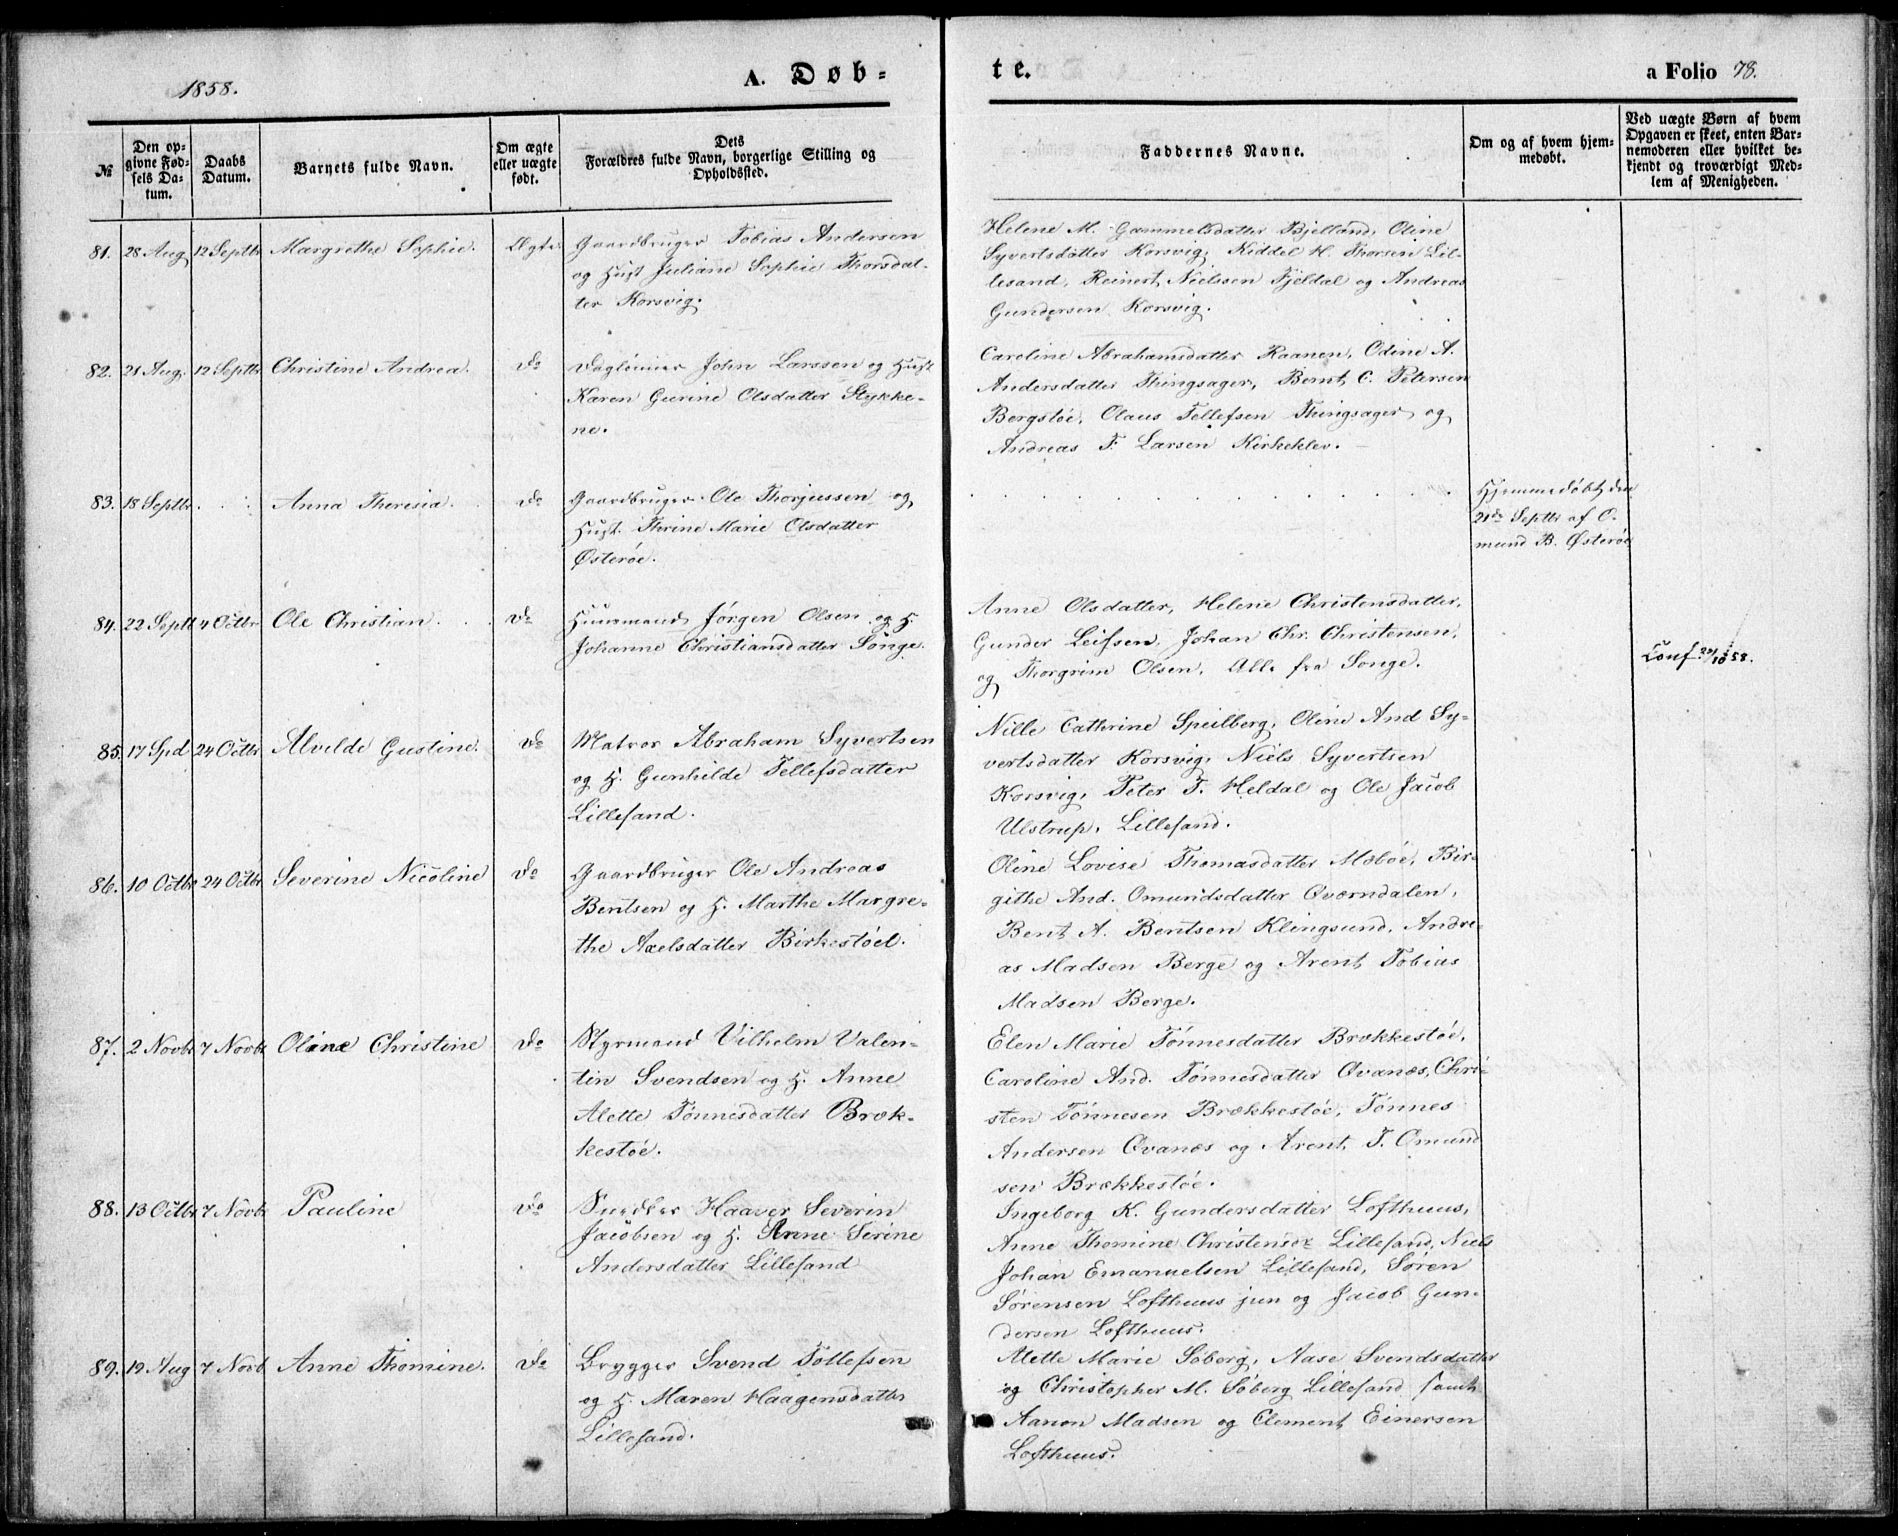 1858.
A. Døb-
te.
a Folio 78.
№
Den op-
givne Fød-
sels Da-
tum.
Daabs
Datum.
Barnets fulde Navn.
Om ægte
eller uægte
født.
Dets
Forældres fulde Navn, borgerlige Stilling og
Opholdssted.
Faddernes Navne.
Om og af hvem hjem-
medøbt.
Ved uægte Børn af hvem
Opgaven er skeet, enten Bar-
nemoderen eller hvilket be-
kjendt og troværdigt Med-
lem af Menigheden.
81. 28 Aug 12 Septbr Margrethe Sophie. Ægte
Gaardbruger Tobias Andersen
og Hust Juliane Sophie Thorsdat-
ter Korsvig.
Helene M. Gammelsdatter Bjelland, Oline
Syvertsdatter Korsvig, Kiddel H. Thorsen Lil-
lesand, Reinert Nielssen Fjeldal og Andreas
Gundersen Korsvig.
82. 21 Aug. 12 Septbr Christine Andrea. Do
Dagleinier John Larssen og Hust
Karen Gurine Olsdatter Stykke-
ne.
Caroline Abrahamsdatter Raanen, Odine A.
Andersdatter Thingsager, Bernt C. Petersen
Bergstøe, Olaus Tellefsen Thingsager og
Andreas T. Larsen Kirkeklev.
83. 18 Septbr Anna Theresia. Do
Gaardbruger Ole Thorjussen og
Hust. Thrine Marie Olsdatter
Østerøe.
Hjemmedøbt den
21de Septbr af O-
mund B. Østerøe
84. 22 Septb 4 Octbr Ole Christian. Do
Huusmand Jørgen Olsen og H.
Johanne Christiansdatter Songe.
Anne Olsdatter, Helene Christensdatter,
Gunder Leifsen, Johan Chr. Christensen,
og Thorgrim Olsen, Alle fra Songe.
Conf. /10 58.
85. 17 Spd 24 Octbr Alvilde Gustine. Do
Matros Abraham Syvertsen
og H. Gunhilde Tellefsdatter
Lillesand.
Nille Cathrine Speilberg, Oline And Sy-
vertsdatter Korsvig, Niels Syvertsen
Korsvig, Peter T. Heldal og Ole Jacob
Ulstrup, Lillesand.
86. 10 Octbr 24 Octbr Severine Nicoline Do
Gaardbruger Ole Andreas
Bentsen og H. Marthe Margre-
the Axelsdatter Birkestøel.
Oline Lovise Thomasdatter Møbøe, Bir-
githe And. Omundsdatter Qværndalen,
Bent A. Bentsen Klingsund, Andre-
as Madsen Berge og Arent Tobias
Madsen Berge.
87. 2 Novbr 7 Novbr Oline Christine Do
Styrmand Vilhelm Valen-
tin Svendsen og H. Anne
Alette Tønnesdatter Bræk-
kestøe.
Elen Marie Tønnesdatter Brækkestøe,
Caroline And. Tønnesdatter Qvanæs, Chri-
sten Tønnesen Brækkestøe, Tønnes
Andersen Qvanæs og Arent T. Omund
sen Brækkestøe.
88. 13 Octbr 7 Novbr Pauline Do
Snedker Haaver Severin
Jacobsen og H. Anne Serine
Andersdatter Lillesand
Ingeborg K. Gundersdatter Lofthuus,
Anne Thomine Christensdr Lillesand, Niels
Johan Emanuelsen Lillesand, Søren
Sørensen Lofthuus jun og Jacob Gun-
dersen Lofthuus.
89. 19 Aug 7 Novb Anne Thomine. Do
Brygger Svend Tollefsen
og H. Maren Haagensdatter
Lillesand.
Alette Marie Søberg, Aase Svendsdatter
og Christopher M. Søberg Lillesand samt
Aanon Madsen og Clement Einersen
Lofthuus.